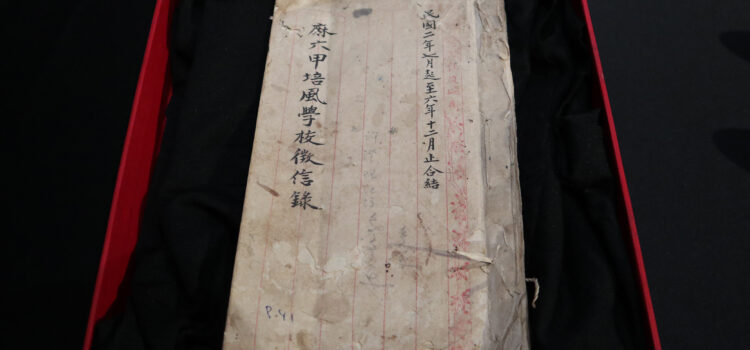 民國二年七月起至六年十二月止合結
麻六甲培風學校徵信錄
P.41